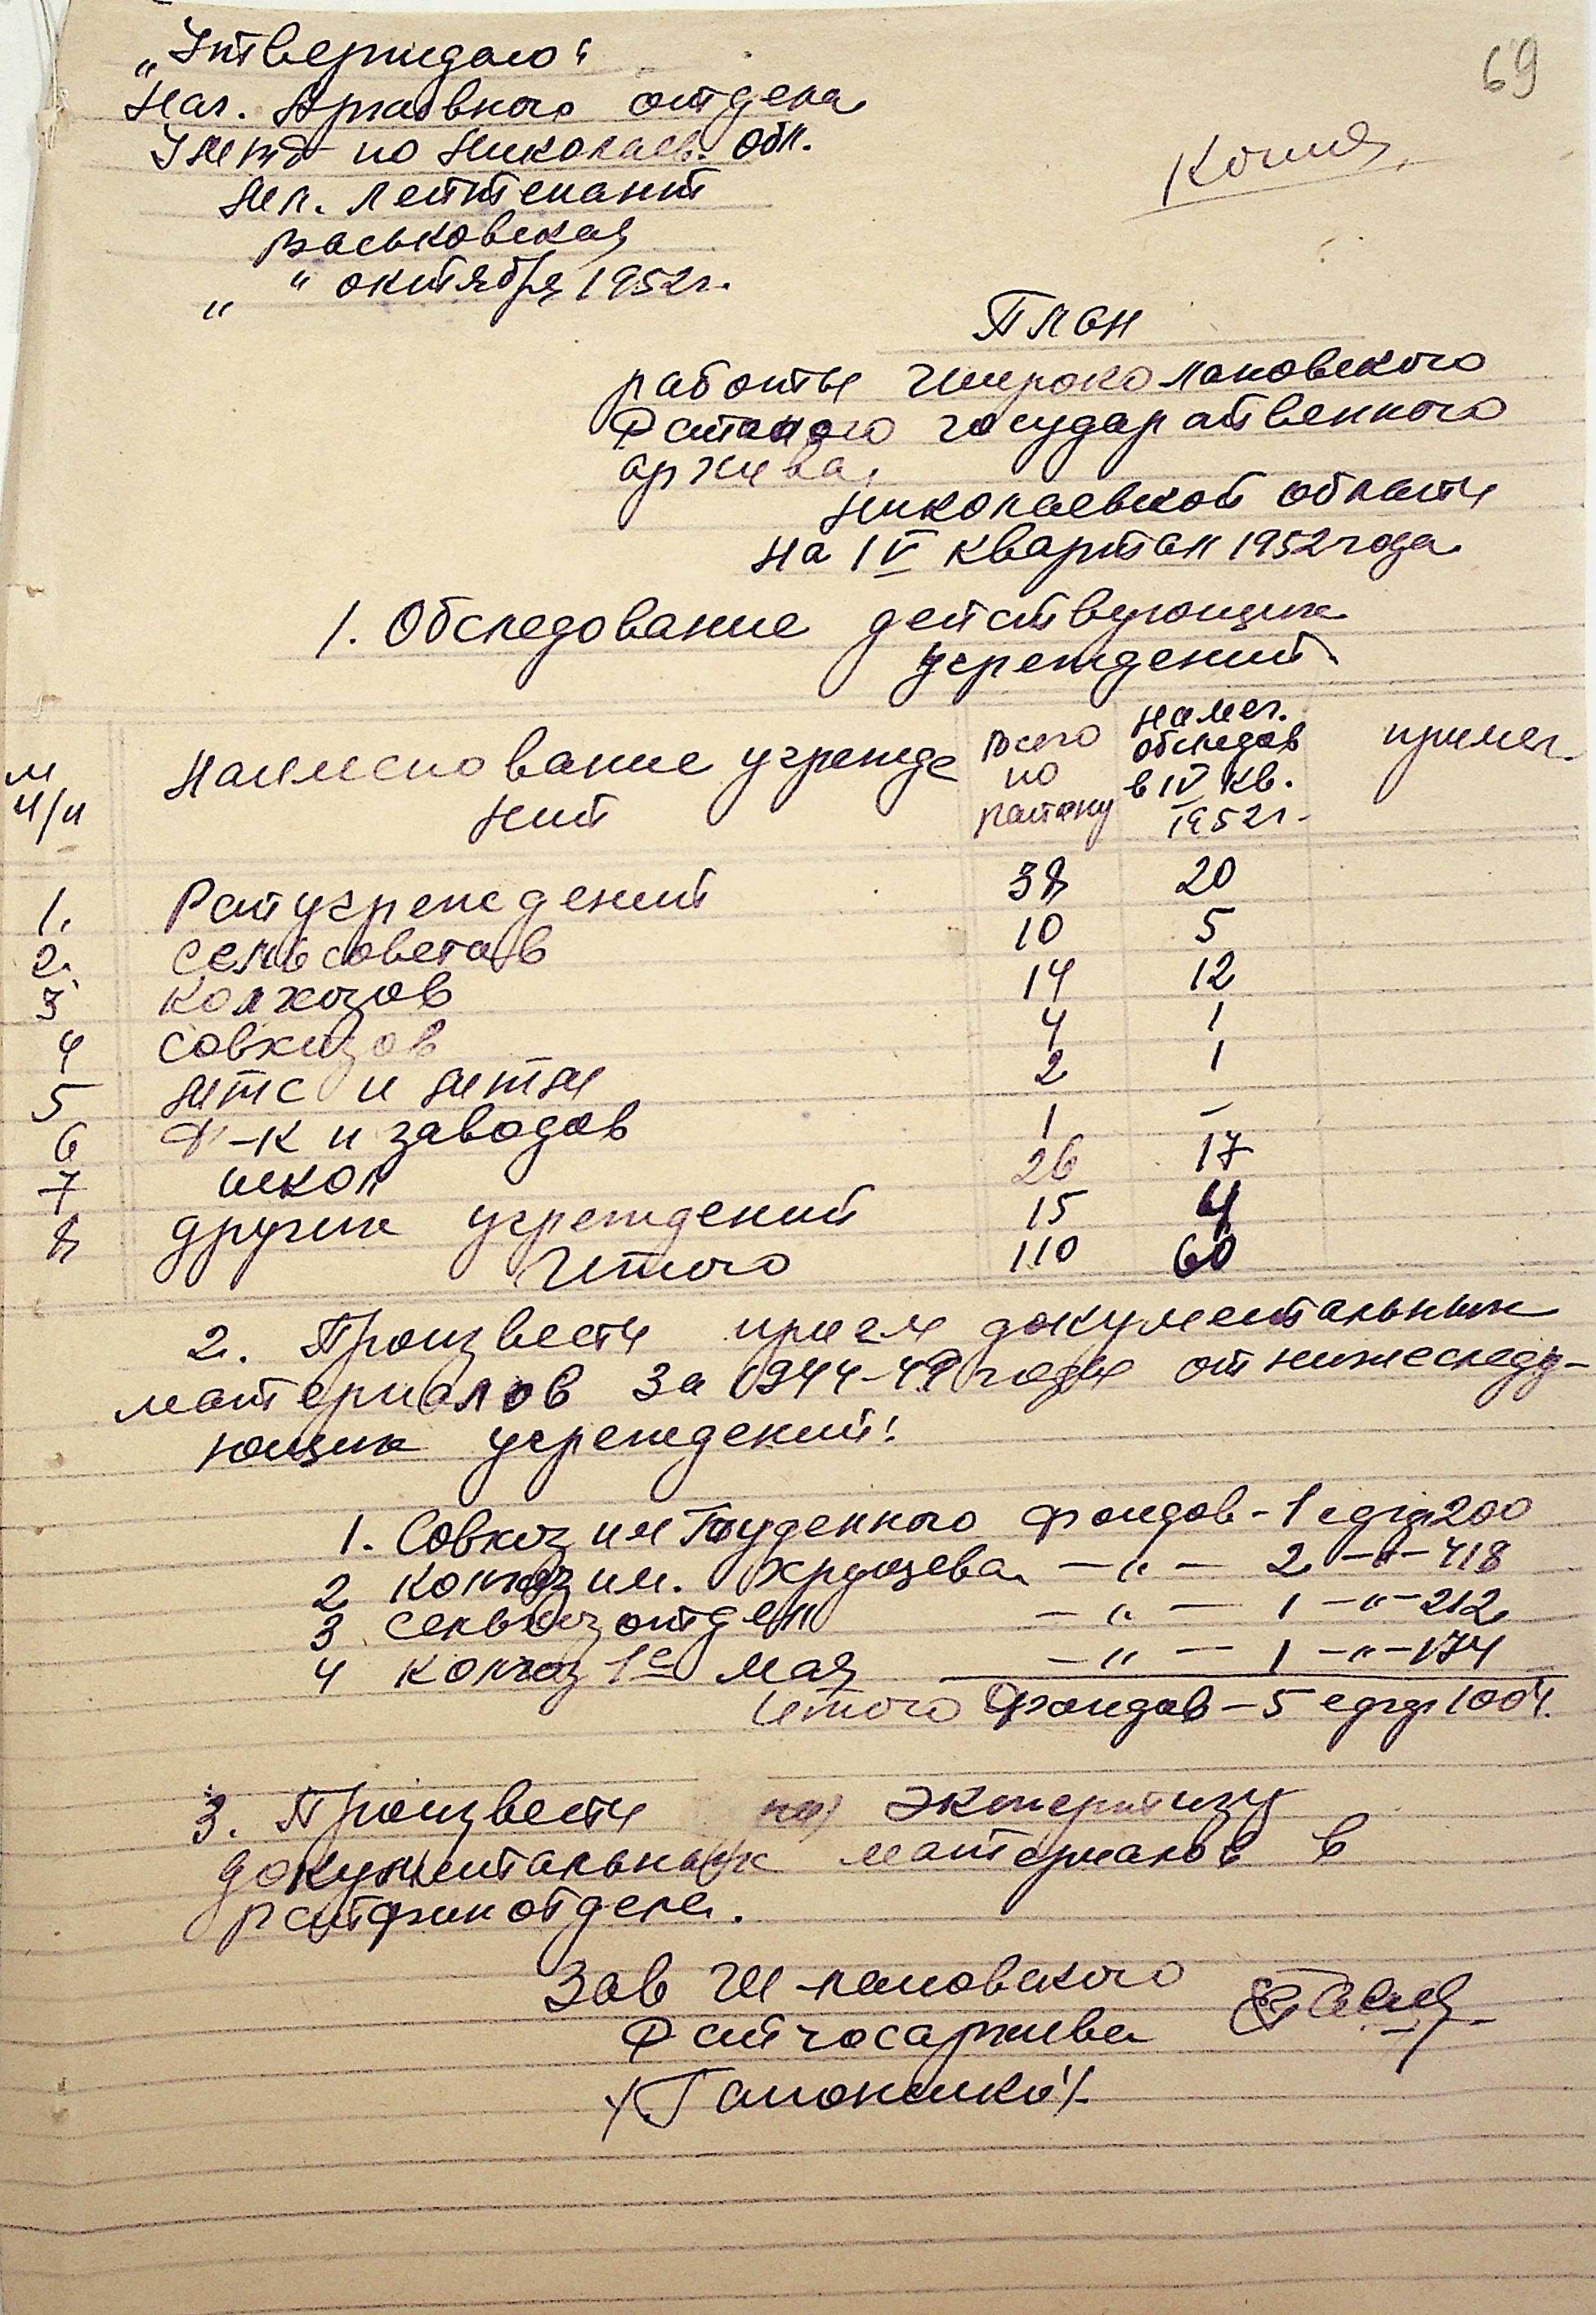 69
„Утверждаю“
Нач. Архивного отдела
УМГБ по Николаев. обл.
Мл. лейтенант
Васьковская
„ “ октября 1952г.
Копия
План
работы Широколановского
Районого государственного
архива,
Николаевской области
на IV квартал 1952 года
1. Обследование действующих
учреждений
№ п/п Наименование учрежде ний Всего по району Намеч. обследов в IV кв. 1952г. примеч.
1. Райучреждений 38 20
2. сельсоветов 10 5
3 колхозов 14 12
4 совхозов 4 1
5 МТС и МТМ 2 1
6 ф-к и заводов 1 –
7 школ 26 17
8 других учреждений 15 4
Итого 110 60
2. Произвести прием документальных
материалов за 1944-49 годы от нижеследу-
ющих учреждений:
1. Совхоз им Буденного фондов – 1 едхр 200
2 колхоз им. Хрущева –„– 2 –„– 418
3 сельхозотдел –„– 1 –„– 212
4 колхоз 1е Мая –„– 1 –„– 174
Итого фондов – 5 едхр 1004.
3. Произвести экспертизу
документальных материалов в
райфинотделе.
Зав Ш-лановского
Райгосархива
/Гапоненко/